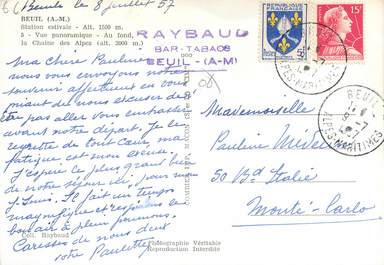 Beuil le 8 juillet 57
BEUIL (A.-M.)
Station estivale - Alt. 1500 m.
5 - Vue panoramique - Au fond,
la Chaine des Alpes (alt. 3000 m.)
Ma chère Pauline
nous vous envoyons notre
souvenir affectueux en vous
priant de nous excuser de n'être
pas aller vous embrasser
avant notre départ. Je le
regrette de tout cœur, ma
fatigue est mon excuse.
J'espère le plus grand bien
de notre séjour ici, pour mon
Louis. Il fait un temps
magnifique et respirons le
bon air à plein poumons.
Caresses de nous deux
votre Paulette
Coll. Raybaud
RAYBAUD
BAR-TABACS
BEUIL - (A-M)
COMBIER IMP. MACON
Photographie Véritable
Reproduction Interdite
15F
BEUIL
ALPES-MARITIMES
BEUIL
ALPES-MARITIMES
Mademoiselle
Pauline
50 Bd d'Italie
Monte-Carlo